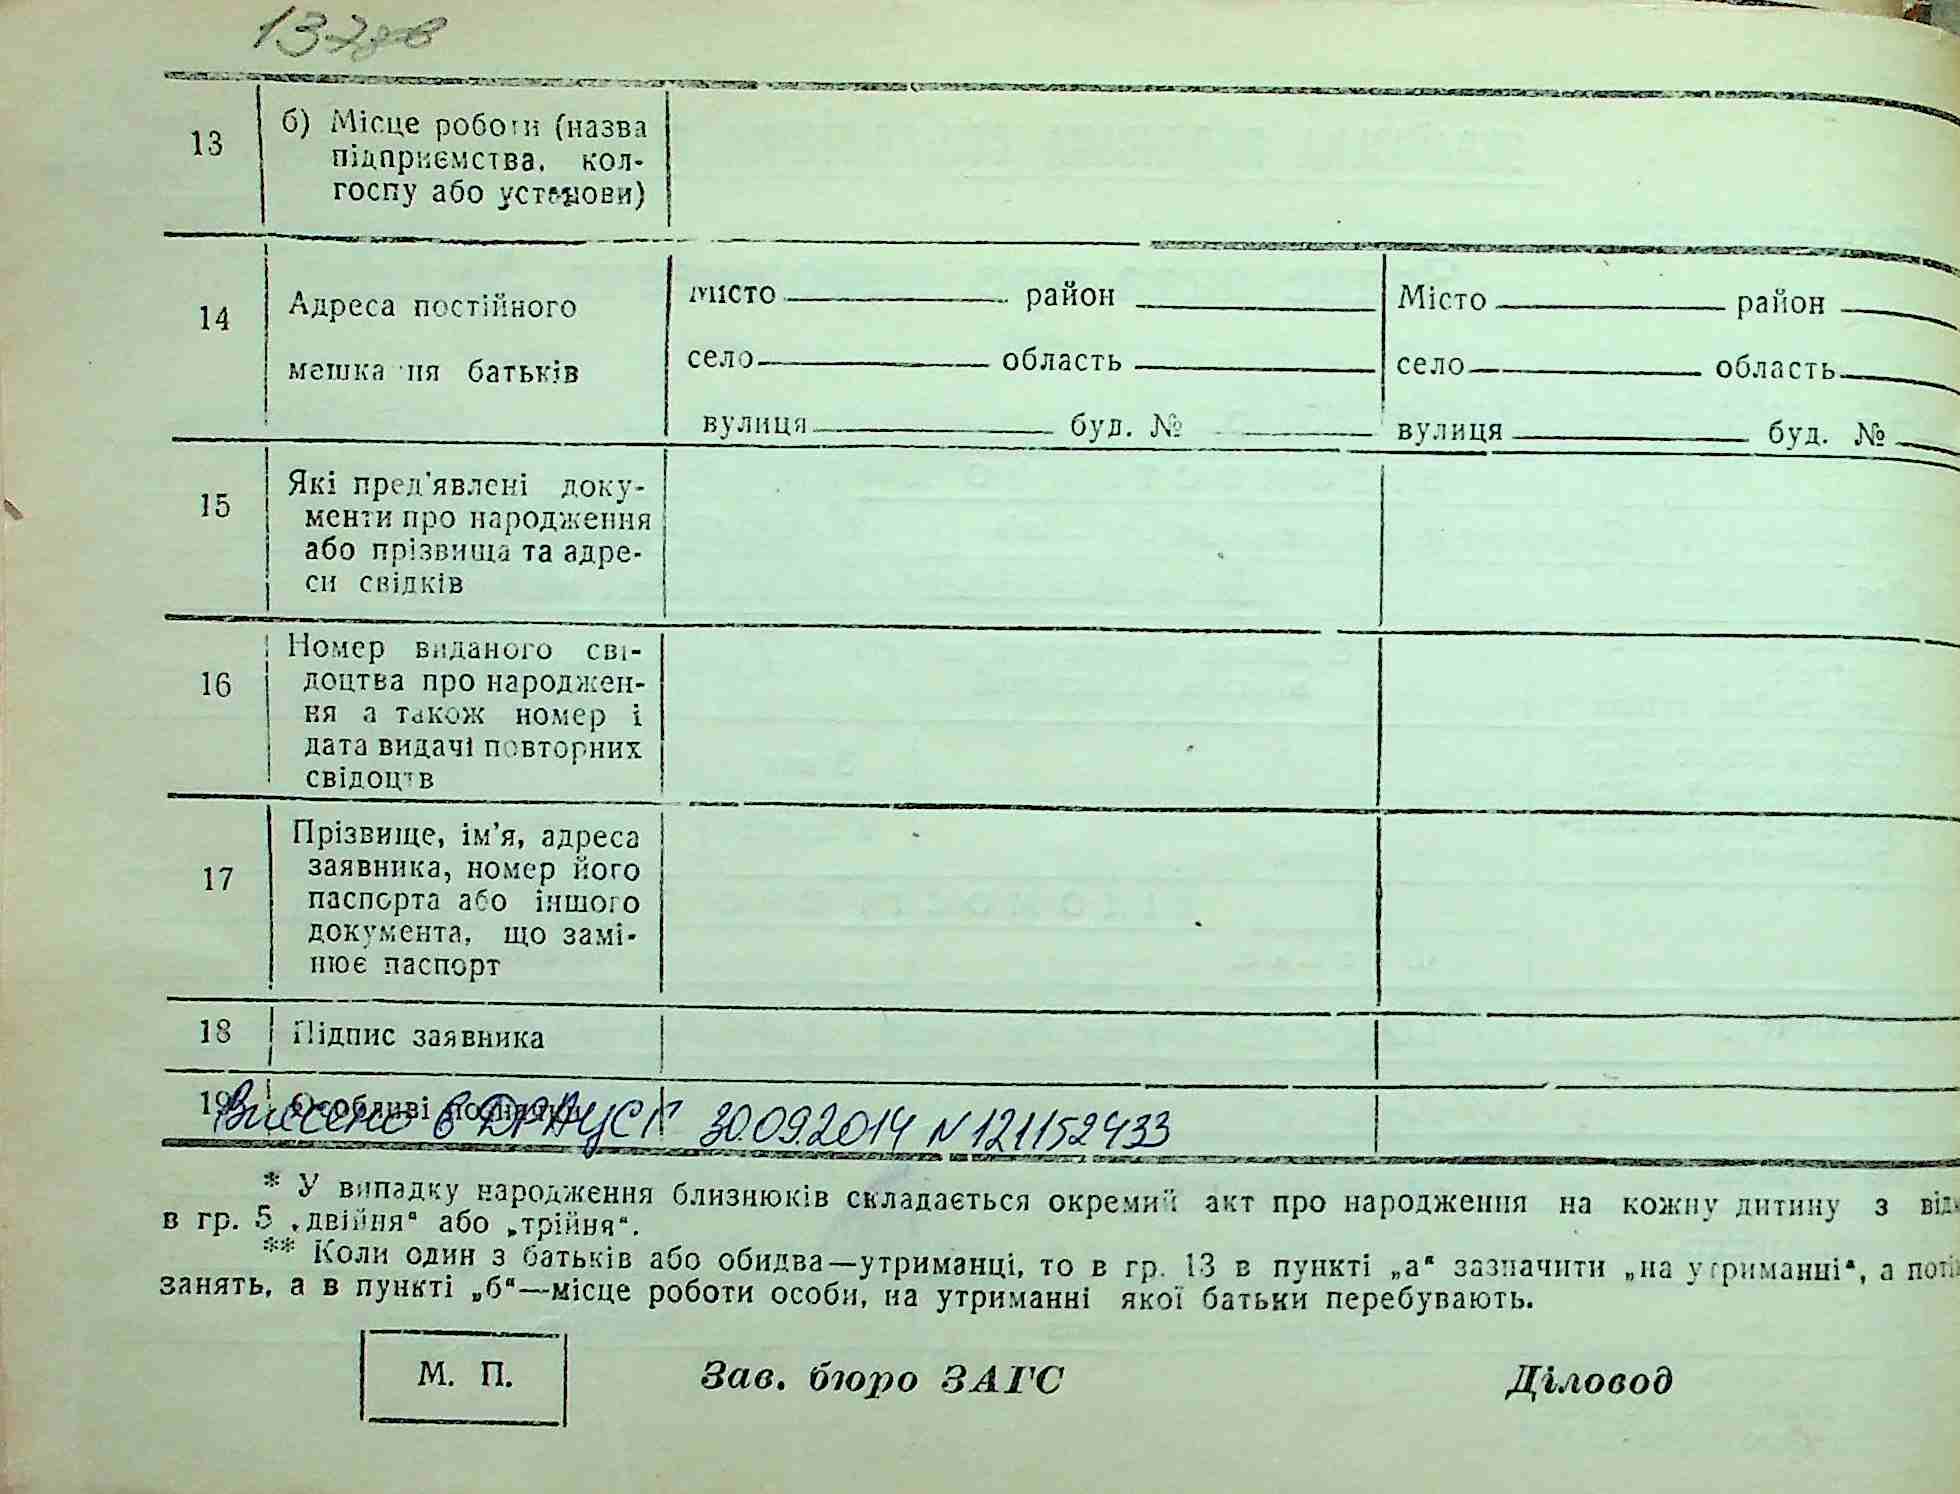 137зв
13 б) Місце роботи (назва
підприємства, кол-
госпу або установи)
14 Адреса постійного
мешкання батьків
місто район
село область
вулиця буд. №
Місто район
село область
вулиця буд. №
15 Які пред'явлені доку-
менти про народження
або прізвища та адре-
си свідків
16 Номер виданого сві-
доцтва про народжен-
ня а також номер і
дата видачі повторних
свідоцтв
17 Прізвище, ім'я, адреса
заявника, номер його
паспорта або іншого
документа, що замі-
нює паспорт
18 Підпис заявника
19 Особливі
Внесено в ДРАЦСГ 30.09.2014 N 121152433
* У випадку народження близнюків складається окремий акт про народження на кожну дитину з від
в гр. 5 „двійня“ або „трійня“.
** Коли один з батьків або обидва—утриманці, то в гр. 13 в пункті „а“ зазначити „на утриманні“, а
занять, а в пункті „б“—місце роботи особи, на утриманні якої батьки перебувають.
М. П. Зав. бюро ЗАГС Діловод